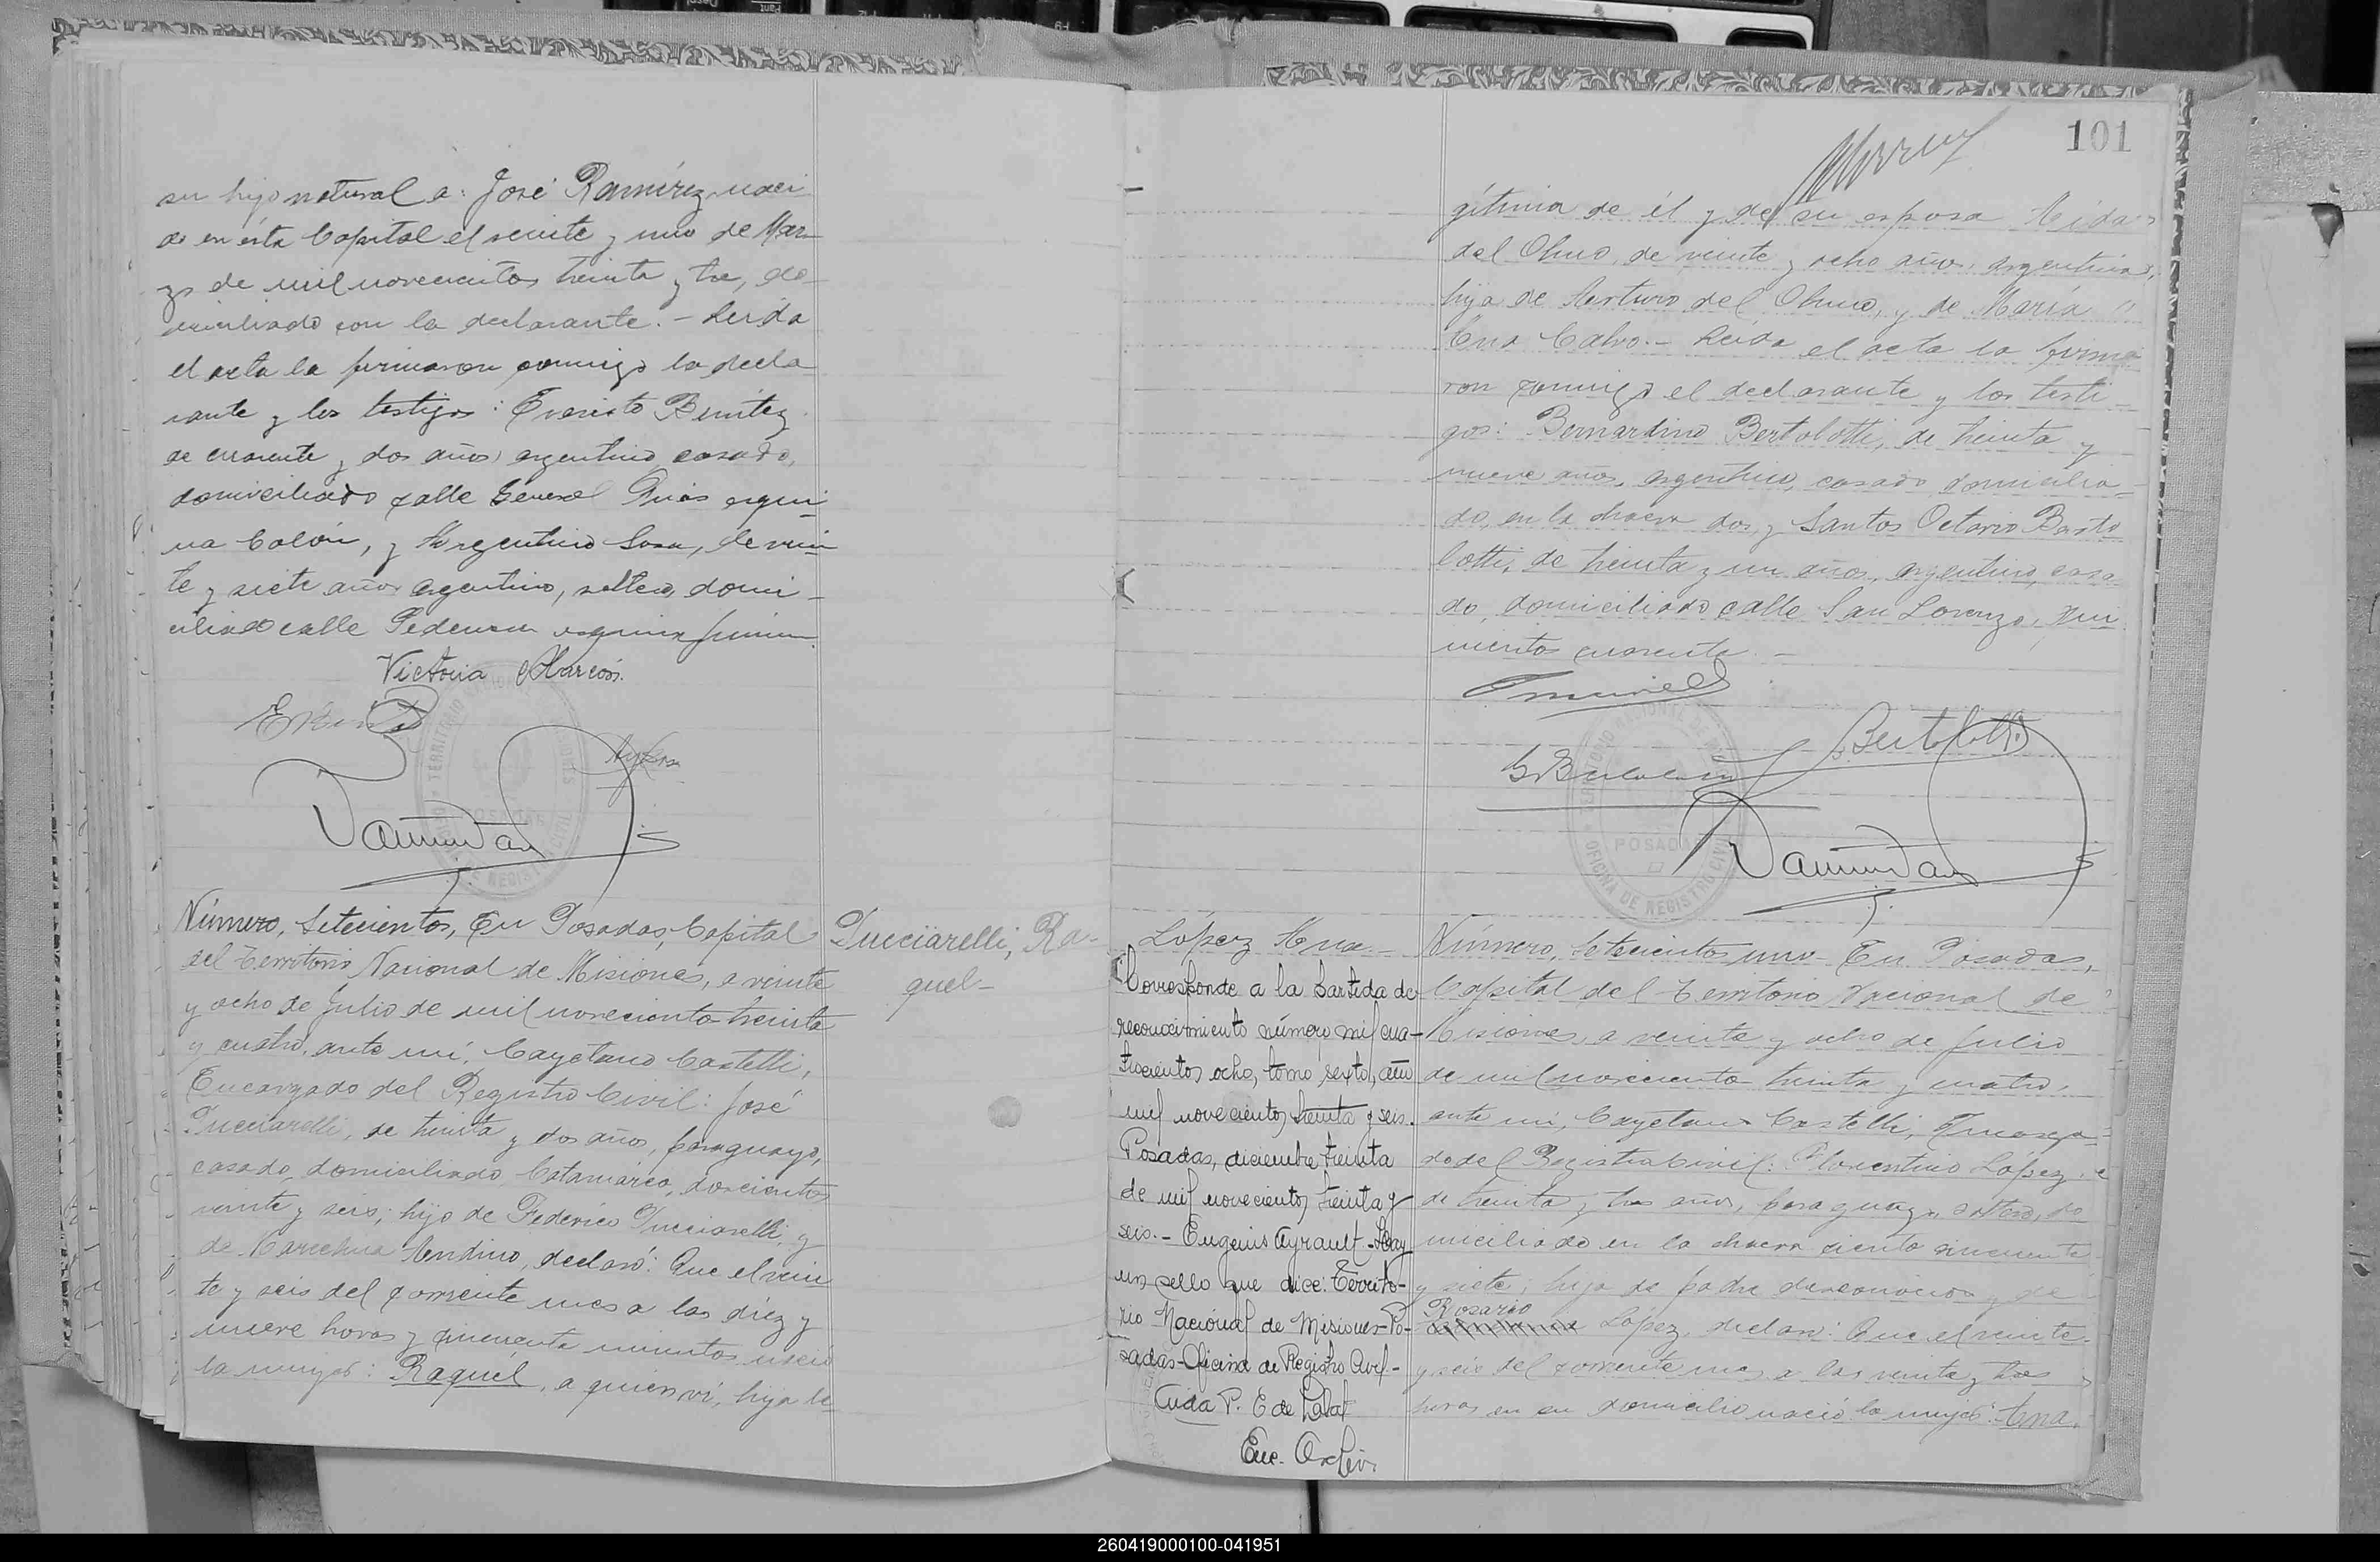 su hijo natural a: José Ramírez, naci
do en ésta Capital el veinte y uno de Mar-
zo de mil novecientos treinta y tres, do-
miciliado con la declarante.- Leída
el acta la firmaron conmigo la decla
rante y los testigos: Evaristo Benítez
de cuarenta y dos años, argentino, casado,
domiciliado calle General esqui-
na Colón, y Argentino Sosa, de vein
te y siete años argentino, soltero, domi-
ciliado calle esquina
Victoria Alarcón.
Número, Setecientos, En Posadas, Capital
del Territorio Nacional de Misiones, a veinte
y ocho de Julio de mil novecientos treinta
y cuatro, ante mí, Cayetano Castelli,
Encargado del Registro Civil: José
Pucciarelli, de treinta y dos años, paraguayo,
casado, domiciliado, Catamarca, doscientos
veinte y seis; hijo de Federico Pucciarelli, y
de Andino, declaró: Que el vein
te y seis del corriente mes a las diez y
nueve horas y cincuenta minutos nació
la mujer: Raquel, a quien ví, hija le-
Pucciarelli, Ra-
quel-
101
gítima de él y de su esposa Aida
del Olmo, de veinte y ocho años, argentina,
hija de Arturo del Olmo, y de María
Ana Calvo.- Leída el acta la firma
ron conmigo el declarante y los testi-
gos: Bernardino Bertolotti, de treinta y
nueve años, argentino, casado, domicilia-
do, en la chacra dos, y Santos Octavio Berto
lotti, de treinta y un años, argentino, casa
do, domiciliado calle San Lorenzo, qui
nientos cuarenta.-
Bertolotti
POSADAS
OFICINA DE REGISTRO CIVIL
López Ana.-
Corresponde a la partida de
reconocimiento número mil cua-
trocientos ocho, tomo sexto, año
mil novecientos treinta y seis.
Posadas, diciembre treinta
de mil novecientos treinta y
seis.- Eugenio Ayrault.- Hay
un sello que dice: Territo-
rio Nacional de Misiones-Po-
sadas-Oficina de Registro Civil-
Aida P. E de Labat
Enc. Archivo.
Número, Setecientos uno- En Posadas,
Capital del Territorio Nacional de
Misiones, a veinte y ocho de Julio
de mil novecientos treinta y cuatro,
ante mí, Cayetano Castelli, Encarga-
do del Registro Civil: Florentino López,
de treinta y tres años, paraguayo, soltero, do
miciliado en la chacra ciento cincuenta
y siete, hijo de padre desconocido y de
Rosario
López, declaró: Que el veinte
y seis del corriente mes a las veinte y tres
horas en su domicilio nació la mujer: Ana,
260419000100-041951